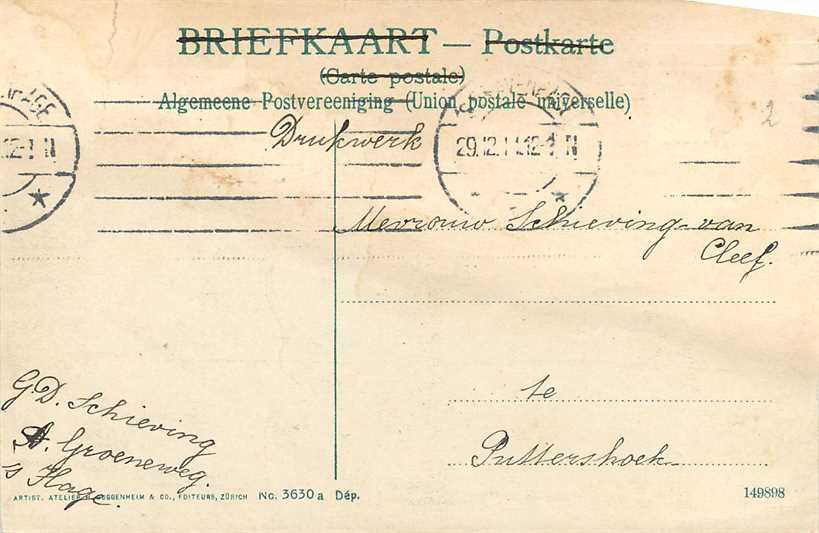 BRIEFKAART — Postkarte
(Carte postale)
Algemeene Postvereeniging (Union postale universelle)
Drukwerk
29.12.1 4.12-1 N
12-1 N
2
Mevrouw Schieving-van
Cleef.
te
Puttershoek
G.D. Schieving
Groeneweg.
's Hage.
ARTIST. ATELIER H. GUGGENHEIM & CO., EDITEURS, ZÜRICH No. 3630a Dép.
149898